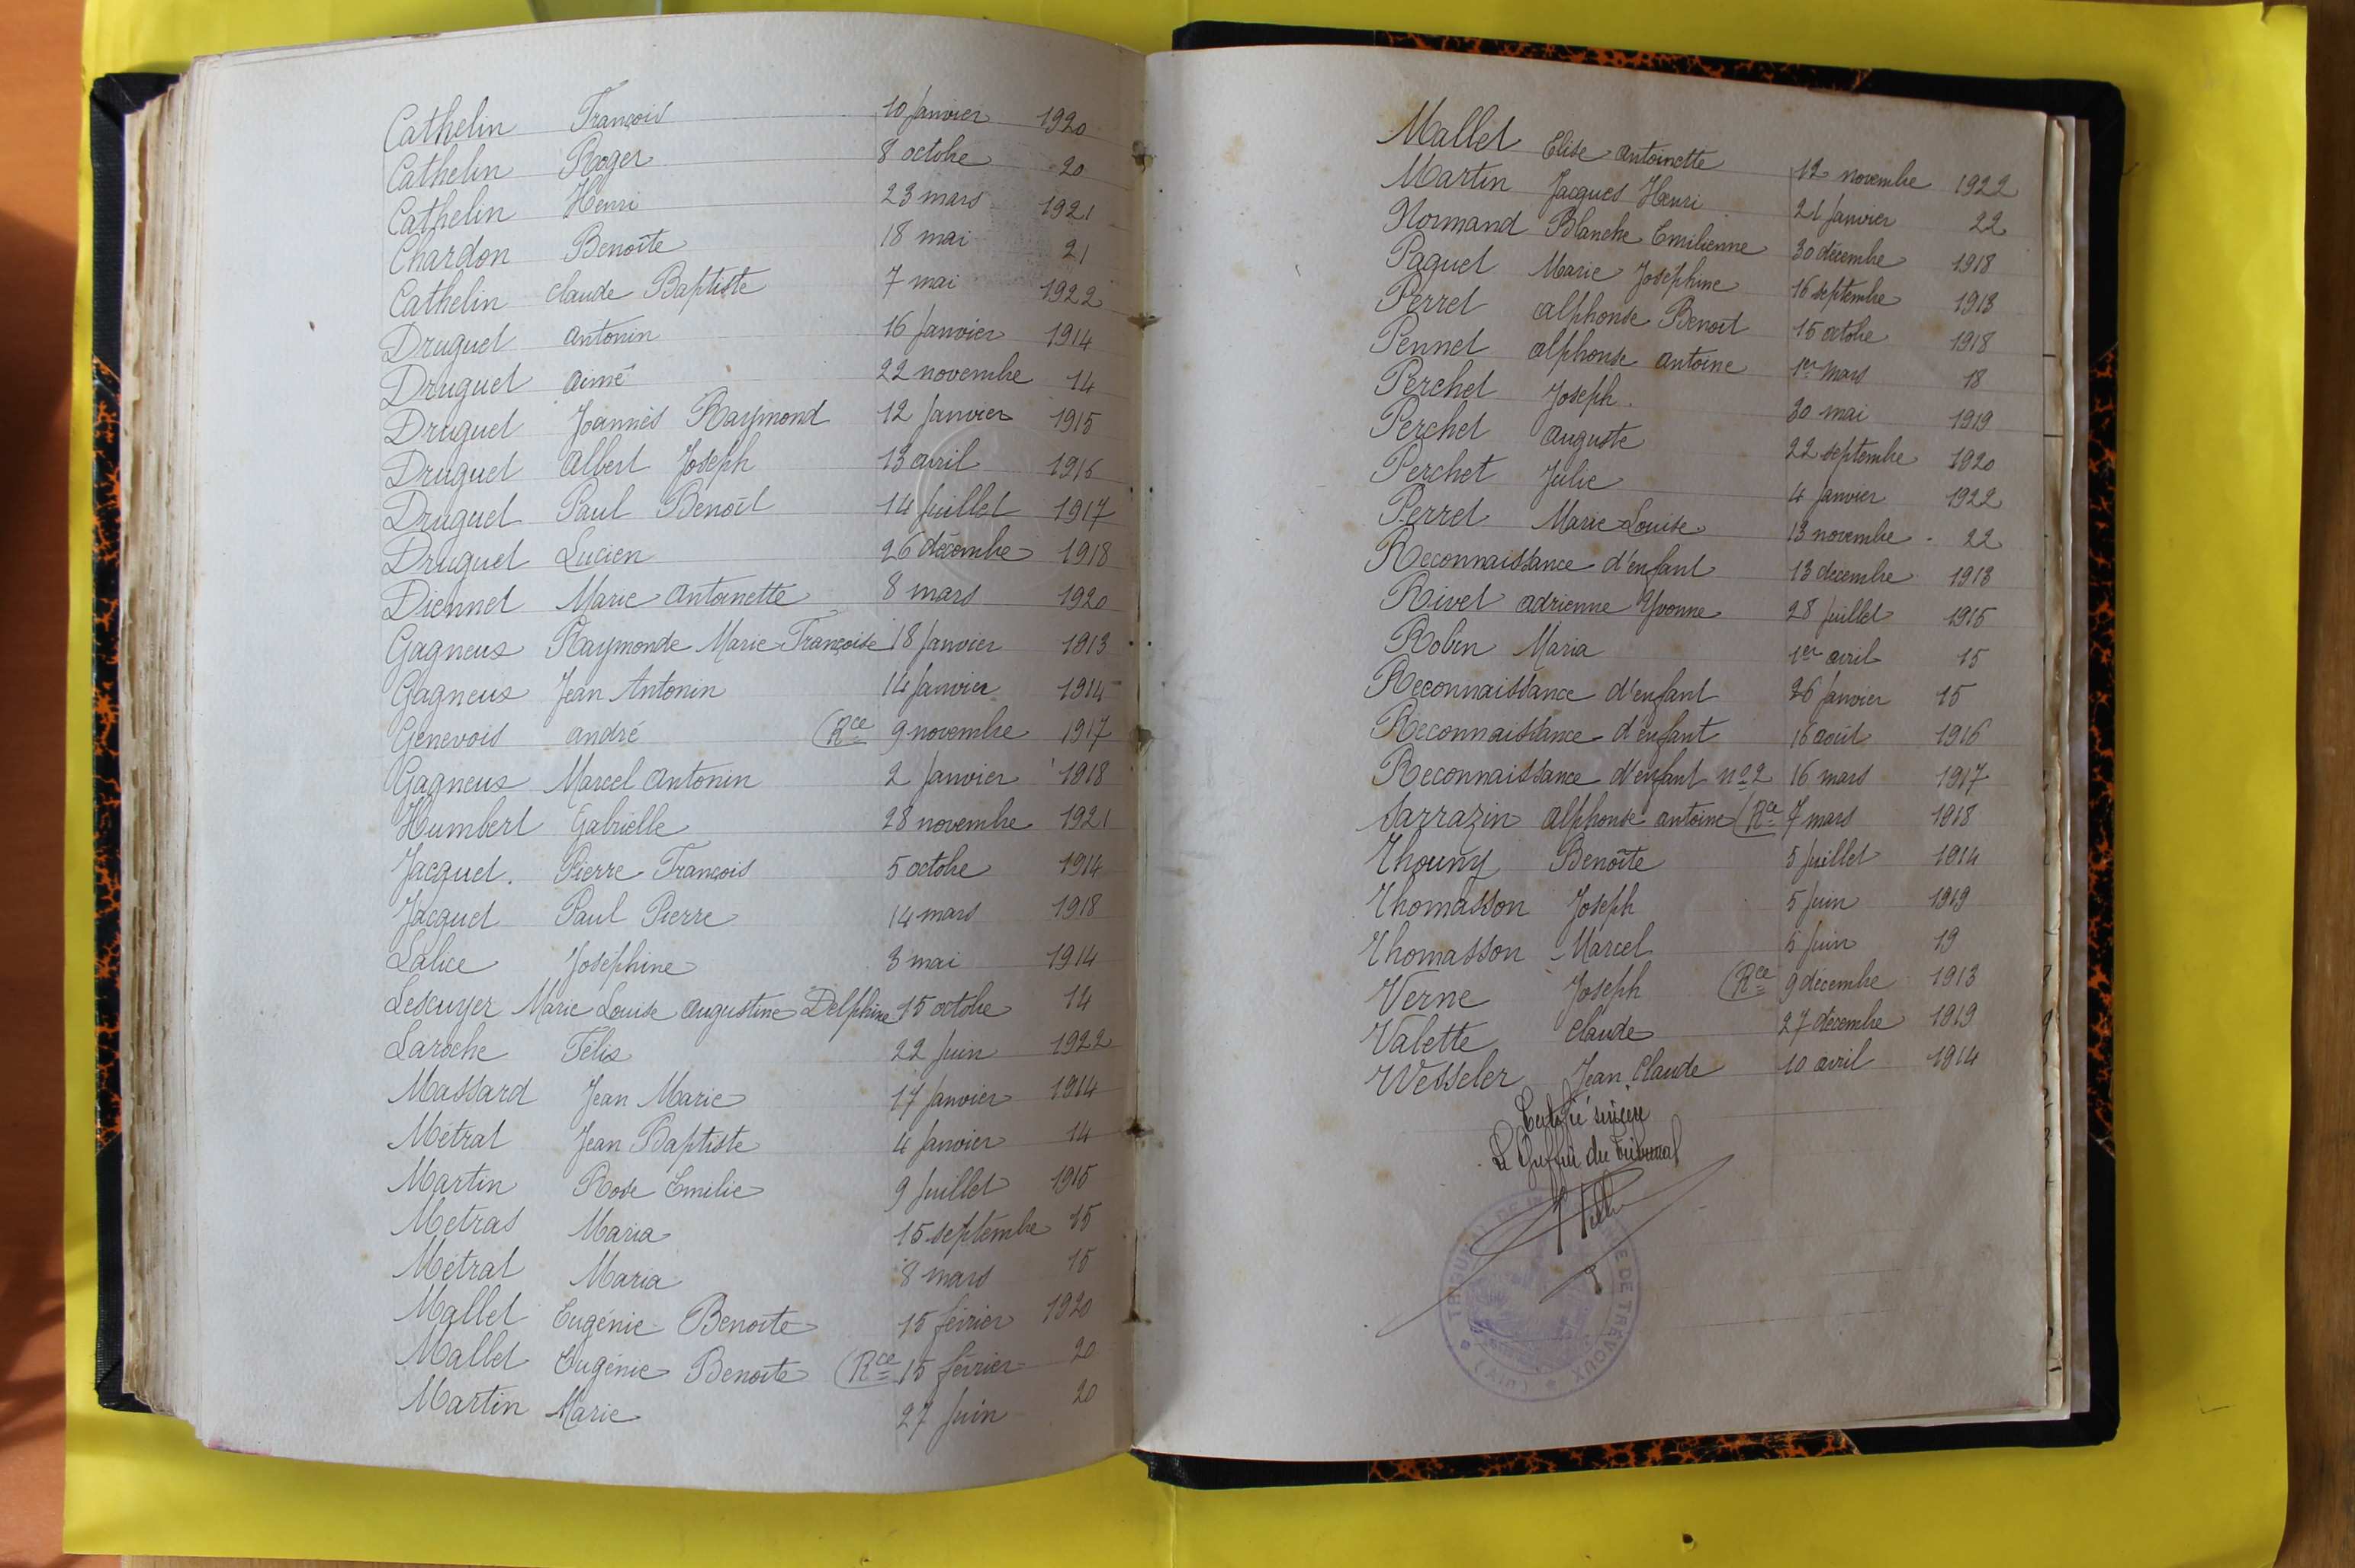 Cathelin François 10 Janvier 1920
Cathelin Roger 8 octobre 20
Cathelin Henri 23 mars 1921
Chardon Benoîte 18 mai 21
Cathelin Claude Baptiste 7 mai 1922
Druguet Antonin 16 Janvier 1914
Druguet Aimé 22 novembre 14
Druguet Joannès Raymond 12 Janvier 1915
Druguet Albert Joseph 13 avril 1916
Druguet Paul Benoît 14 Juillet 1917
Druguet Lucien 26 décembre 1918
Diennet Marie Antoinette 8 mars 1920
Gagneux Raymonde Marie Françoise 18 Janvier 1913
Gagneux Jean Antonin 14 Janvier 1914
Genevois André (Rce 9 novembre 1917
Gagneux Marcel Antonin 2 Janvier 1918
Humbert Gabrielle 28 novembre 1921
Jacquet. Pierre François 5 octobre 1914
Jacquet Paul Pierre 14 mars 1918
Lalice Joséphine 3 mai 1914
Lescuyer Marie Louise Augustine Delphine 15 octobre 14
Laroche Félix 22 Juin 1922
Massard Jean Marie 17 Janvier 1914
Métrat Jean Baptiste 4 Janvier 14
Martin Rose Emilie 9 Juillet 1915
Métras Maria 15 septembre 15
Métrat Maria 8 mars 15
Mallet Eugénie Benoîte 15 février 1920
Mallet Eugénie Benoîte (Rce 15 février 20
Martin Marie 27 Juin 20
Mallet Elise Antoinette 12 novembre 1922
Martin Jacques Henri 21 Janvier 22
Normand Blanche Emilienne 30 décembre 1918
Paquet Marie Joséphine 16 septembre 1913
Perret Alphonse Benoît 15 octobre 1918
Pennet Alphonse Antoine 1er Mars 18
Perchet Joseph. 30 mai 1919
Perchet Auguste 22 septembre 1920
Perchet Julie 4 Janvier 1922
Perret Marie Louise 13 novembre 22
Reconnaissance d'enfant 13 décembre 1913
Rivet Adrienne Yvonne 28 Juillet 1915
Robin Maria 1er avril 15
Reconnaissance d'enfant 26 Janvier 15
Reconnaissance d'enfant 16 août 1916
Reconnaissance d'enfant no 2 16 mars 1917
Sarrazin Alphonse Antoine (Rce 7 mars 1918
Thouny Benoîte 5 Juillet 1914
Thomasson Joseph 5 Juin 1919
Thomasson Marcel 5 Juin 19
Verne Joseph (Rce 9 décembre 1913
Valette Claude 27 décembre 1919
Wesseler Jean Claude 10 avril 1914
Certifié sincère
Le Greffier du Tribunal
DE TREVOUX * (AIN) * TRIBUNAL DE